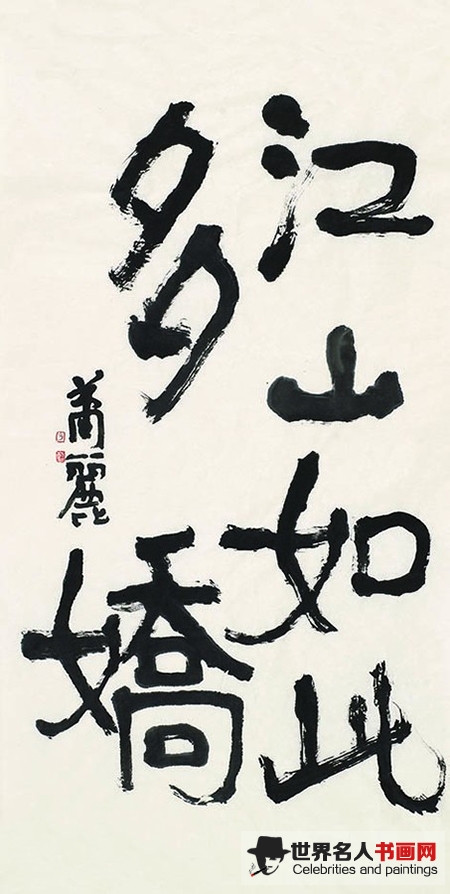 江山如此
多嬌
萧麗
世界名人书画网
Celebrities and paintings